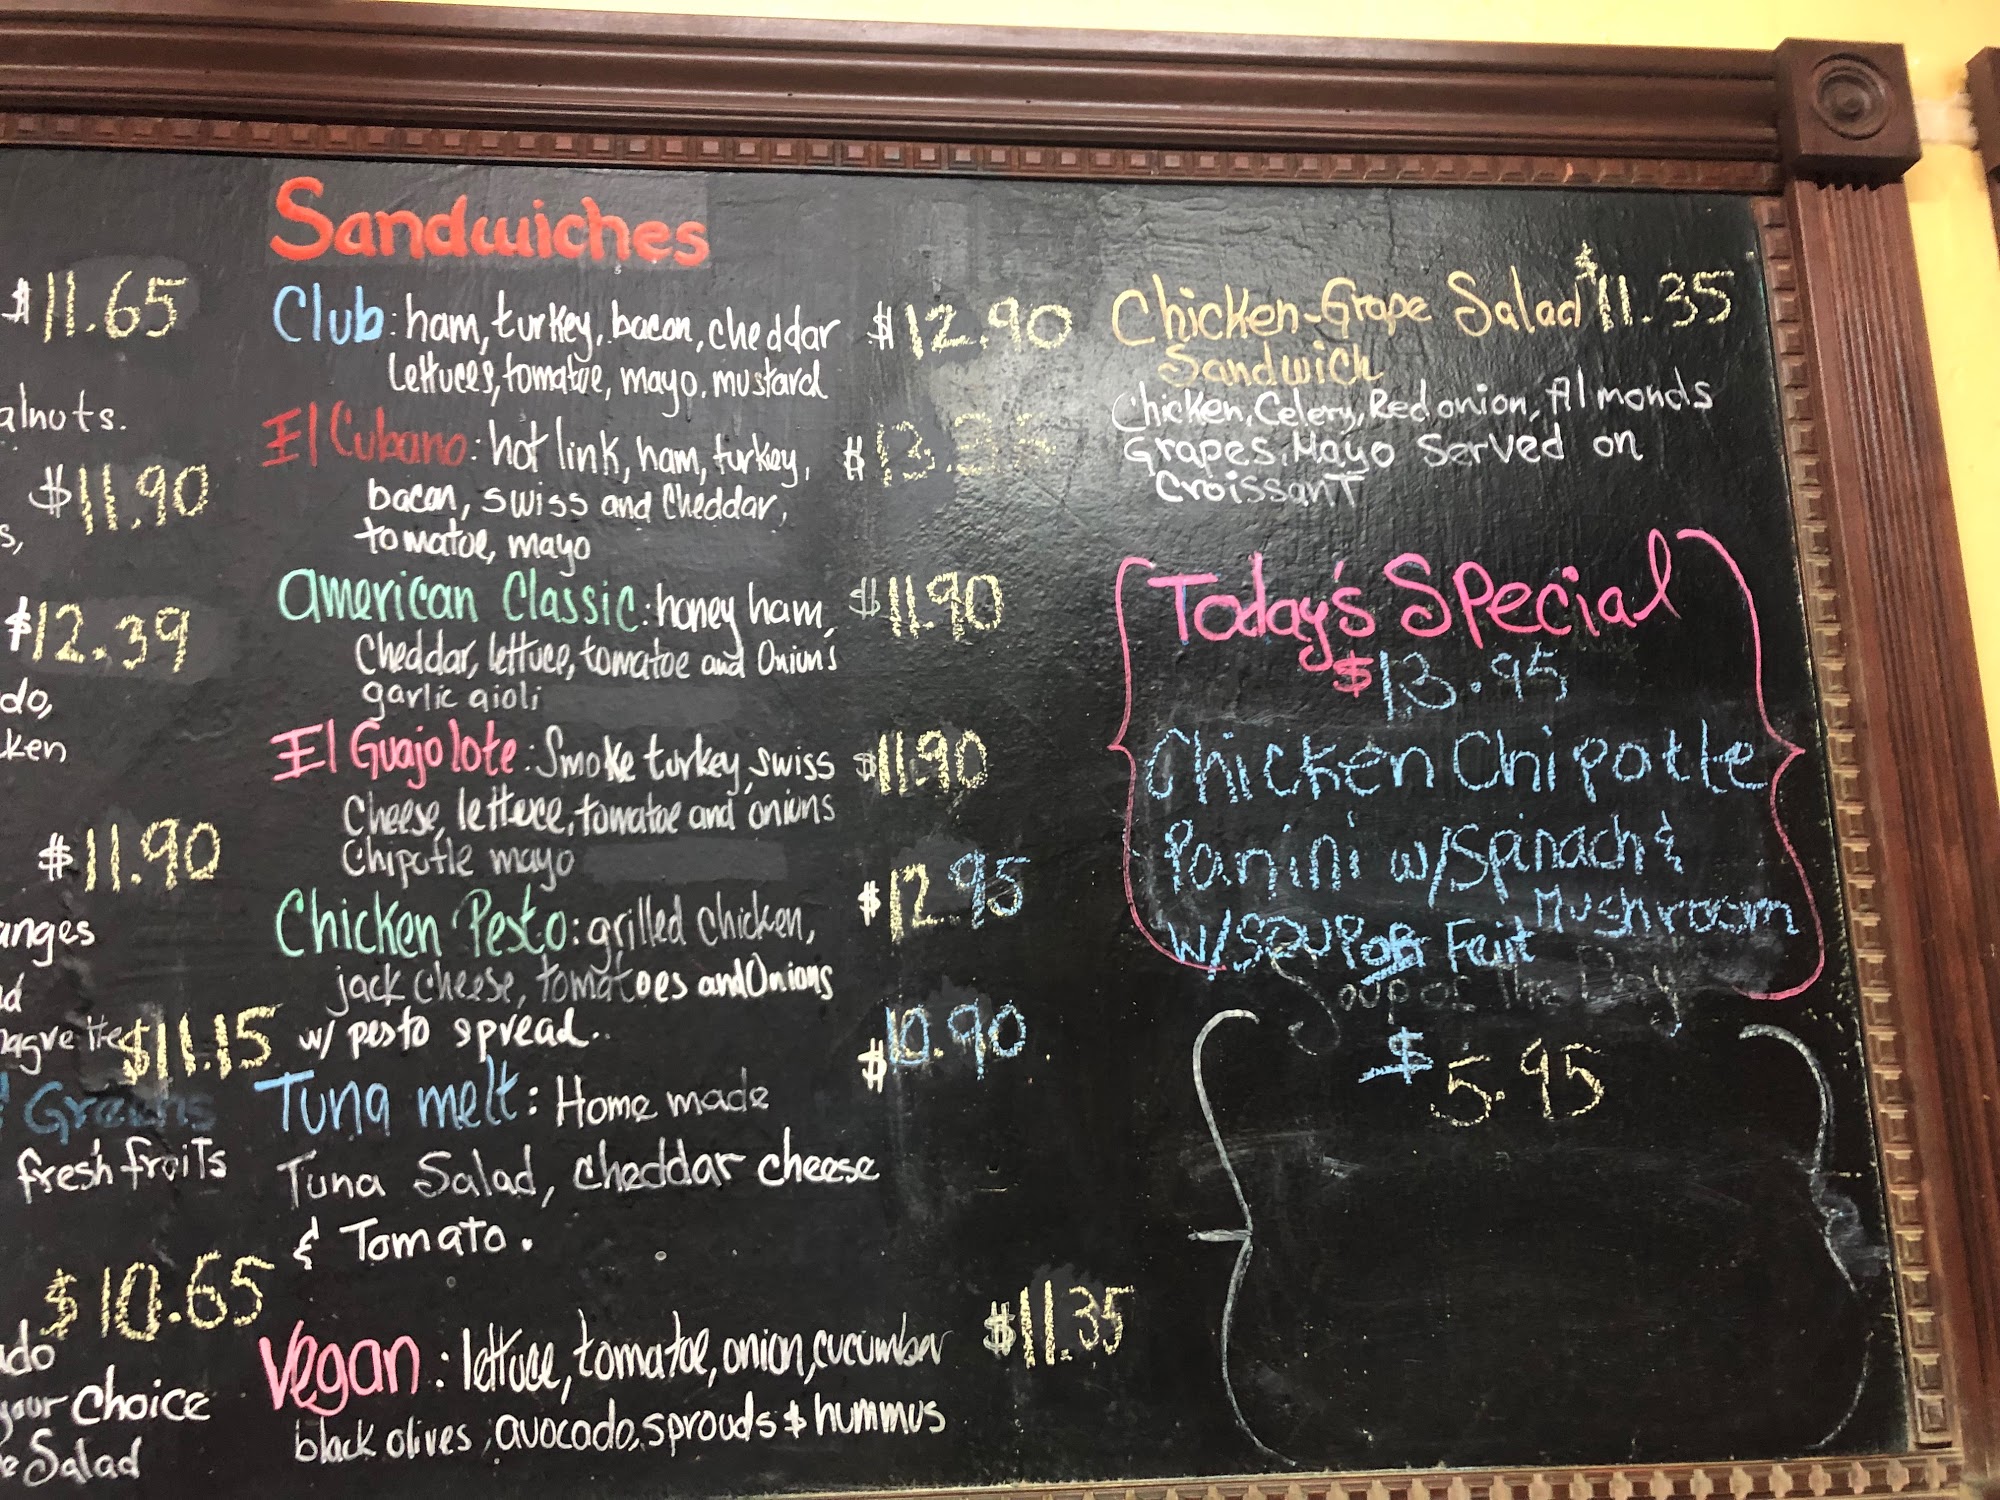 $11.65
alnuts.
$11.90
s,
$12.39
do,
ken
$11.90
anges
$11.15
Greens
fresh fruiTs
$10.65
ado
your Choice
Salad
Sandwiches
Club: ham, turkey, bacon, cheddar $12.90
lettuces, tomatoe, mayo. mustard
El Cubano: hot link, ham, turkey, $13.
bacon, swiss and cheddar,
tomatoe, mayo
American Classic: honey ham, $11.90
Cheddar, lettuce, tomatoe and Onions
garlic aioli
El Guajolote: Smoke turkey, swiss $11.90
Cheese, lettuce, tomatoe and onions
Chipotle mayo
Chicken Pesto: grilled chicken, $12.95
jack cheese, tomatoes and Onions
w/ pesto spread..
Tuna melt: Home made $10.90
Tuna Salad, cheddar cheese
& Tomato.
Vegan: lettuce, tomatoe, onion, cucumber $11.35
black olives, avocado, sprouds & hummus
Chicken-Grape Salad $11.35
Sandwich
Chicken, Celery, Red onion, Almonds
Grapes, Mayo Served on
CroissanT
Today's Special
$13.95
Chicken Chipotle
Panini w/Spinach &
Mushroom
w/SOUP or Fruit
Soup of The Day
$5.95